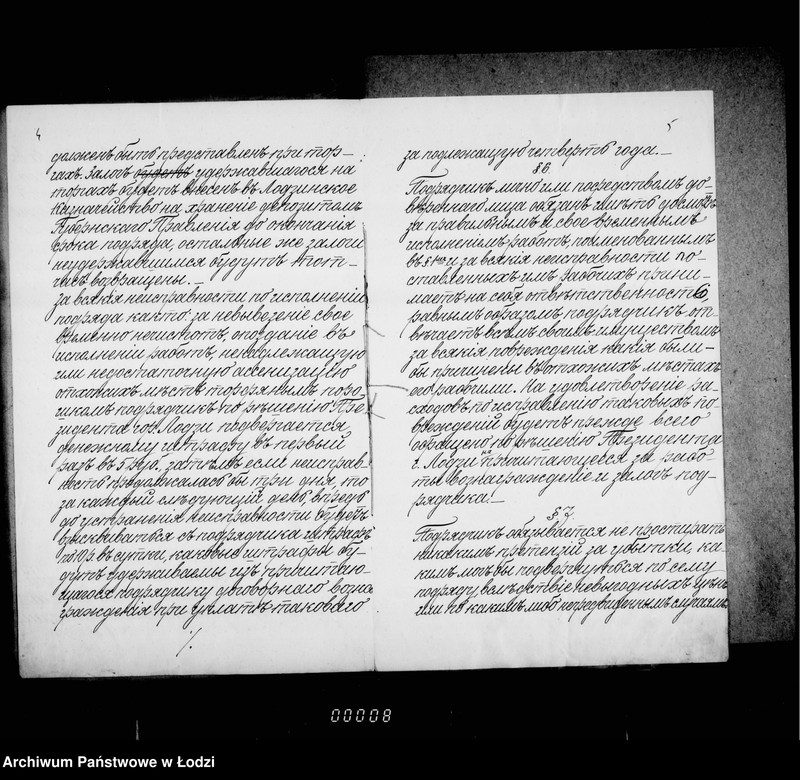 4
долженъ быть представленъ при тор-
гахъ. Залогъ будетъ удержавшагося на
торгахъ будетъ внесенъ въ Лодзинское
Казначейство на храненіе депозитомъ
Губернскаго Правленія до окончанія
срока подряда, остальные же залоги
неудержавшимся будутъ тот-
часъ возвращены.-
За всякія неисправности по исполненію
подряда какъ то: за невывезеніе свое
временно нечистотъ, опозданіе въ
исполненіи работъ, ненадлежащую
или недостаточную ассенизацію
отхожихъ мѣстъ торфянымъ поро-
шкомъ подрядчикъ по рѣшенію Пре-
зидента гор. Лодзи подвергается
денежному штрафу въ первый
разъ въ 5 руб, затѣмъ если неисправ-
ность продолжалась бы три дня, то
за каждый слѣдующій день, впредь
до устраненія неисправности будетъ
взыскиваться съ подрядчика штрафъ
по 10 р. въ сутки, каковые штрафы бу-
дутъ удерживаемы изъ причитаю-
щагося подрядчику договорнаго возна-
гражденія при уплатѣ таковаго
./.
5
за подлежащую четверть года.-
§ 6.
Подрядчикъ лично или посредствомъ до-
вѣреннаго лица обязанъ имѣть досмотръ
за правильнымъ и свое временнымъ
исполненіемъ работъ, поименованныхъ
въ § и за всякія неисправности по-
ставленныхъ имъ рабочихъ прини-
маетъ на себя отвѣтственность,
равнымъ образомъ подрядчикъ от-
вѣчаетъ всѣмъ своимъ имуществомъ
за всякія поврежденія какія были-
бы причинены въ отхожихъ мѣстахъ
его рабочими. На удовлетвореніе ра-
сходовъ по исправленію таковыхъ по-
врежденій будетъ прежде всего
обращено по рѣшенію Президента
г. Лодзи причитающееся за рабо
ты вознагражденіе и залогъ под-
рядчика.-
§ 7.
Подрядчикъ обязывается не простирать
никакихъ претензій за убытки, ка-
кимъ могъ бы подвергнуться по сему
подряду вслѣдствіе невыгодныхъ цѣнъ
или по какимъ либо непредвидѣннымъ случаямъ
00008
Archiwum Państwowe w Łodzi